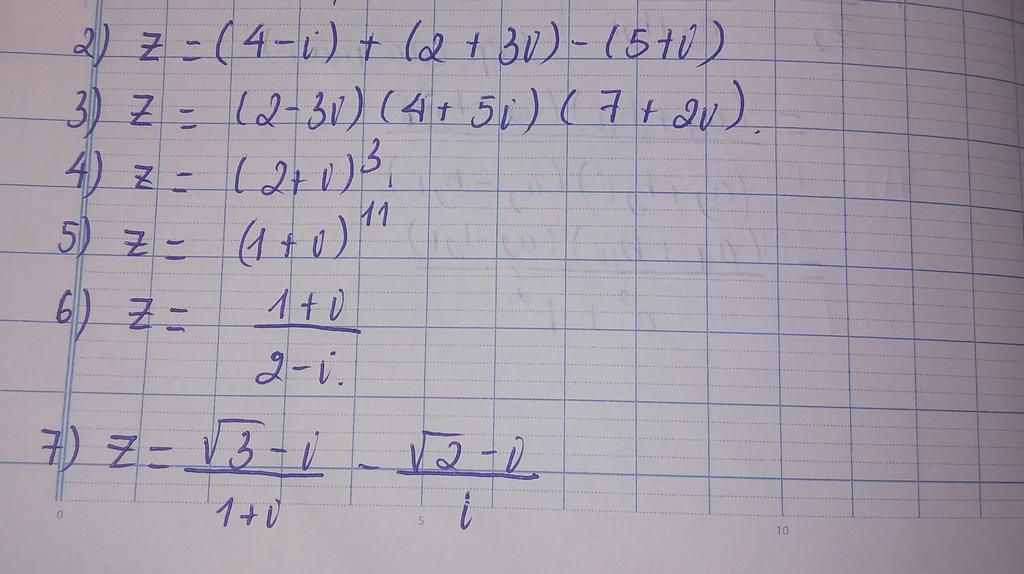 2) z = (4 - i) + (2 + 3i) - (5 + i)
3) z = (2 - 3i) (4 + 5i) ( 7 + 2i ).
4) z = (2 + i)³.
5) z = (1 + i)¹¹
6) z = 1 + i
2 - i.
7) z = √3 - i - √2 - i
1 + i i
0 5 10